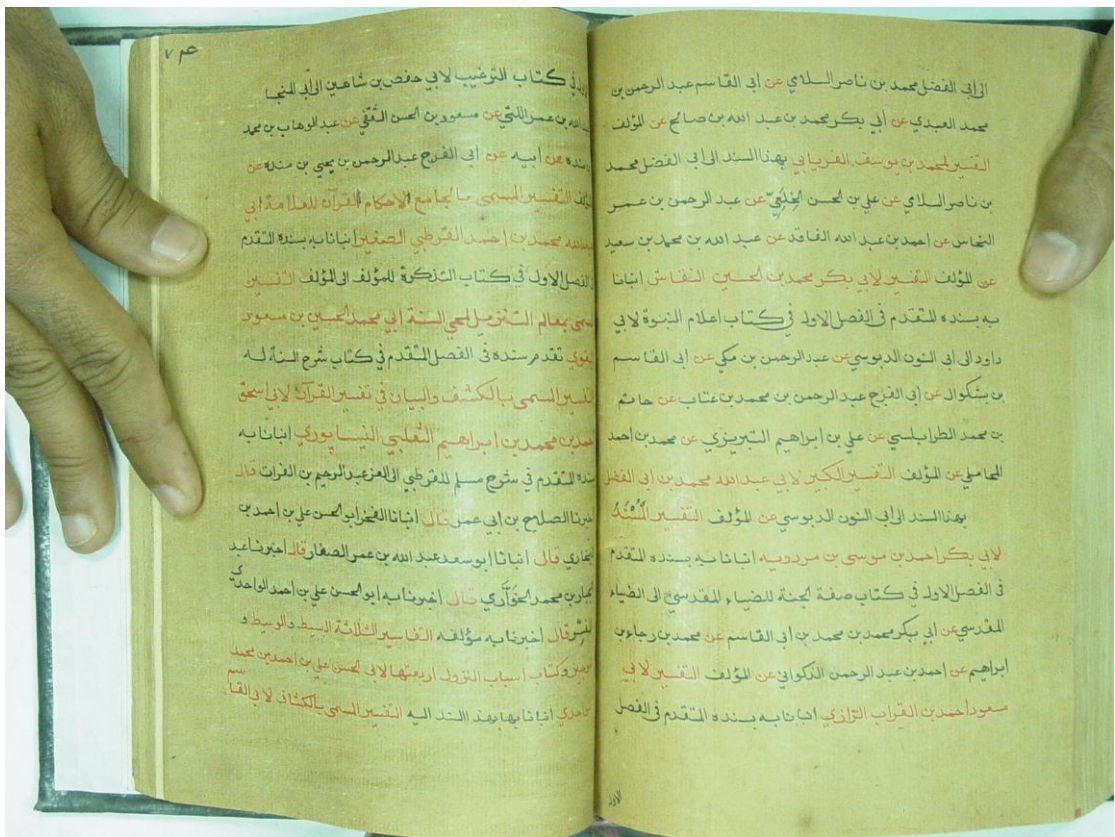 الى ابى الفضل محمد بن ناصر السلامي عن ابى القاسم عبد الرحمن بن
محمد العبدي عن أبي بكر محمد بن عبد الله بن صالح عن المؤلف
التفسير لمحمد بن يوسف الفريابي بهذا السند الى ابى الفضل محمد
بن ناصر السلامي عن علي بن الحسن الخلعي عن عبد الرحمن بن عمر
النحاس عن احمد بن عبد الله الفاقد عن عبد الله بن محمد بن سعيد
عن المؤلف التفسير لابي بكر محمد بن الحسين النقاش انبانا
به بسنده المتقدم في الفصل الاول في كتاب اعلام النبوة لابي
داود الى ابى النون الدبوسي عن عبد الرحمن بن مكي عن ابى القاسم
بن بشكوال عن ابى الفرج عبد الرحمن بن محمد بن عتاب عن حاتم
بن محمد الطرابلسي عن علي بن ابراهيم التبريزي عن محمد بن احمد
المحاملي عن المؤلف التفسير الكبير لابي عبد الله محمد بن ابى الفضل
بهذا السند الى ابى النون الدبوسي عن المؤلف التفسير المسند
لابي بكر احمد بن موسى بن مردويه انبانا به بسنده المتقدم
فى الفصل الاول في كتاب صفة الجنة للضياء المقدسي الى الضياء
المقدسي عن ابي بكر محمد بن محمد بن ابى القاسم عن محمد بن رجاء بن
ابراهيم عن احمد بن عبد الرحمن الذكواني عن المؤلف التفسير لابي
سعود احمد بن الفرات الرازي انبانا به بسنده المتقدم فى الفصل
الاول
في كتاب الترغيب لابي حفص بن شاهين الى ابى المنجا
الله بن عمر اللتي عن مسعود بن الحسن الثقفي عن عبد الوهاب بن محمد
منده عن أبيه عن ابى الفرج عبد الرحمن بن يحيى بن منده عن
المؤلف التفسير المسمى بالجامع الاحكام القرآن للعلامة ابي
عبد الله محمد بن احمد القرطبي الصغير انبانا به بسنده المتقدم
الفصل الاول في كتاب التذكرة للمؤلف الى المؤلف التفسير
المسمى بمعالم التنزيل لمحي السنة ابي محمد الحسين بن مسعود
البغوي تقدم سنده فى الفصل المتقدم في كتاب شرح السنة له
التفسير المسمى بالكشف والبيان في تفسير القرآن لابي اسحق
احمد بن محمد بن ابراهيم الثعلبي النيسابوري انبانا به
بسنده المتقدم في شرح مسلم للقرطبي الى العز عبد الرحيم بن الفرات قال
اخبرنا الصلاح بن ابي عمر قال انبانا الفخر ابو الحسن علي بن احمد بن
البخاري قال انبانا ابو سعد عبد الله بن عمر الصفار قال اخبرنا عبد
الجبار بن محمد الخواري قال اخبرنا به ابو الحسن علي بن احمد الواحدي
المفسر قال اخبرنا به مؤلفه التفاسير الثلاثة البسيط والوسيط و
الوجيز وكتاب اسباب النزول اربعتها لابي الحسن علي بن احمد بن محمد
الواحدي انبانا بها بهذا السند اليه التفسير المسمى بالكشاف لابي القاسم